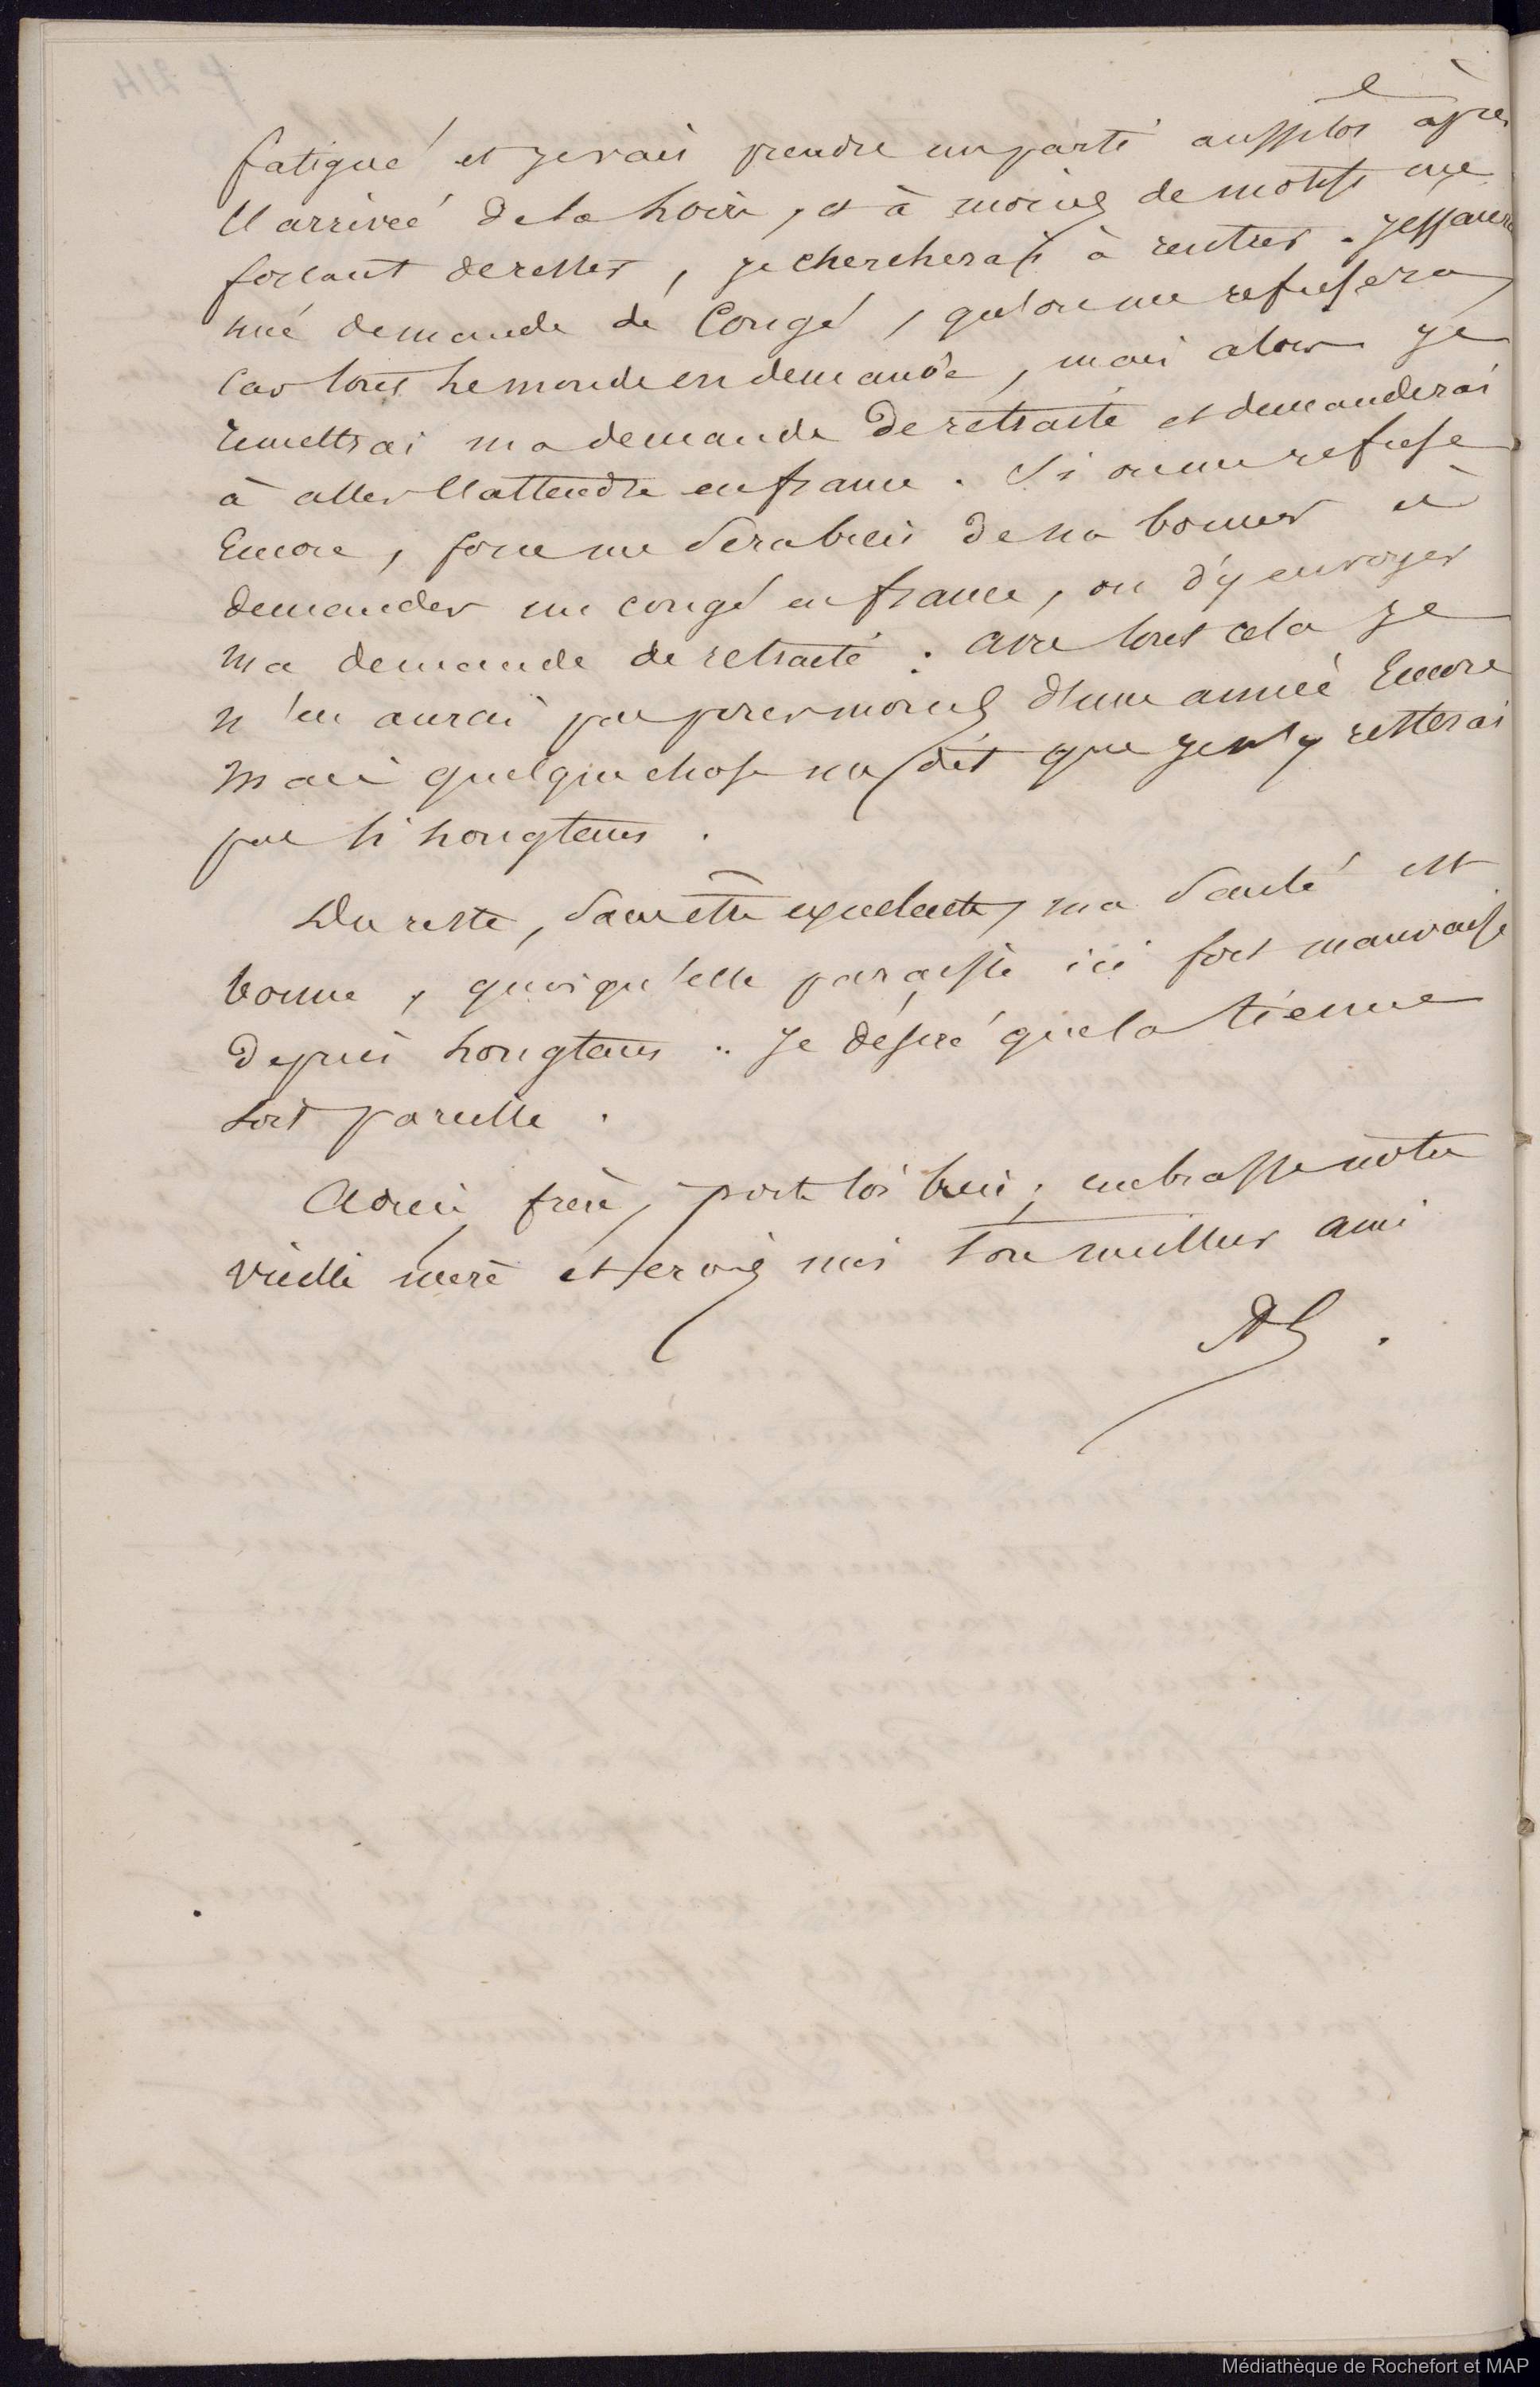 fatigué et je vais prendre un parti aussitot après
l'arrivée de la Loire, et à moins de motifs me
forcant de rester, je chercherai à rentrer. J'essaierai
une demande de Congé, qu'on me refusera,
Car tout le monde en demande, mais alors je
remettrai ma demande de retraite et demanderai
à aller l'attendre en france. Si on me refuse
Encore, force me sera bien de me borner à
demander un congé en france, ou d'y envoyer
ma demande de retraite. avec tout cela je
n'en aurai pas pour moins d'une année Encore
Mais quelque chose me dit que je n'y resterai
pas si longtems.
Du reste, sans être excellente, ma Santé est
bonne, quoiqu'elle paraisse ici fort mauvaise
depuis longtems. Je désire que la tienne
soit pareille.
Adieu frère, porte toi bien; embrasse notre
vieille mère et crois moi ton meilleur ami
Médiathèque de Rochefort et MAP